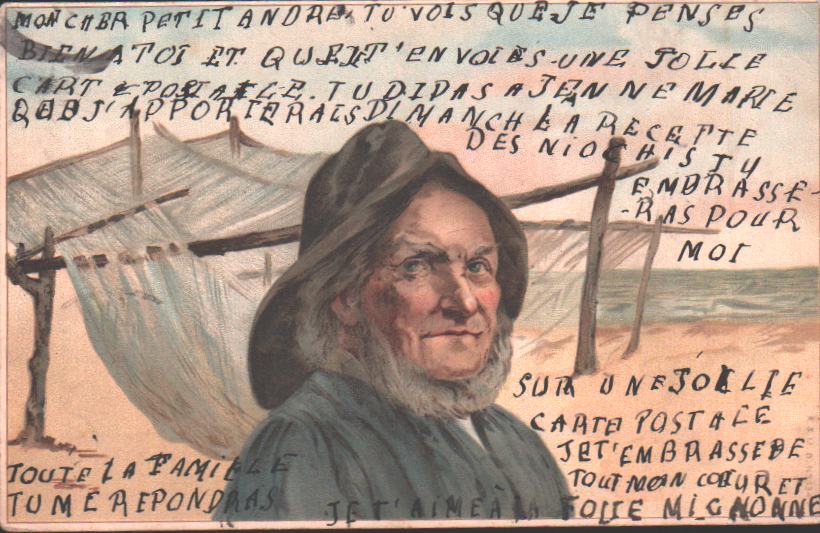 MON CHER PETIT ANDRE. TU VOIS QUE JE PENSES
BIEN A TOI ET QUE JE T'ENVOIES-UNE JOLIE
CARTE POSTALE. TU DIRAS A JEANNE MARIE
QUE J'APPORTERAIS DIMANCHE LA RECETTE
DES NIOCHIS TU
EMBRASSE-
-RAS POUR
MOI
TOUTE LA FAMILLE
TU ME REPONDRAS
SUR UNE JOLIE
CARTE POSTALE
JE T'EMBRASSE DE
TOUT MON COEUR ET
JE T'AIME À LA FOLIE MIGNONNE